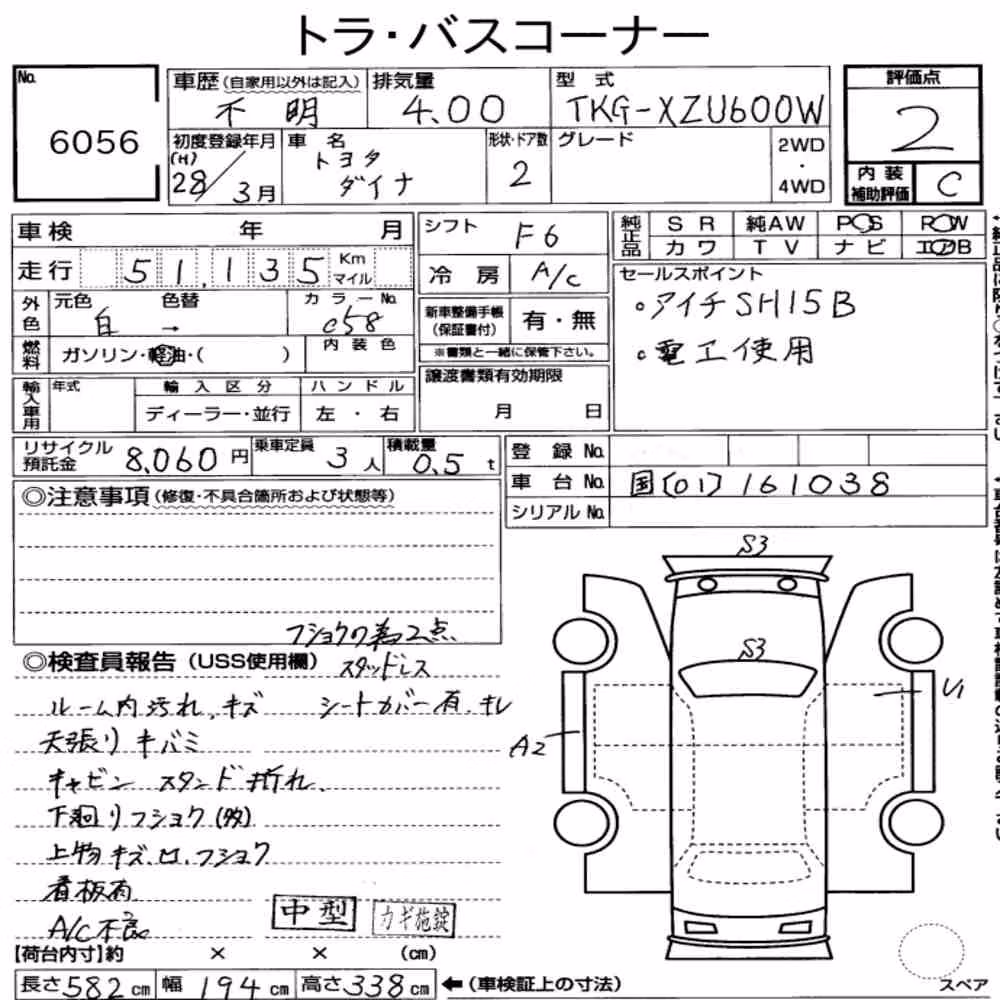 トラ・バスコーナー
No.
6056
車歴(自家用以外は記入)
不明
排気量
4.00
型式
TKG-XZU600W
評価点
2
初度登録年月
(H)
28/3月
車名
トヨタ
ダイナ
形状・ドア数
2
グレード
2WD
・
4WD
内装
補助評価
C
車検 年 月
シフト
F6
純正品
SR 純AW PS PW
カワ TV ナビ エアB
走行 51,135 Km
マイル
冷房
A/c
セールスポイント
。アイチSH15B
。電工使用
外色
元色 色替
白 →
カラーNo.
058
新車整備手帳
(保証書付)
有・無
※書類と一緒に保管下さい。
燃料
ガソリン・軽油・( )
内装色
輸入車用
年式
輸入区分
ディーラー・並行
ハンドル
左・右
譲渡書類有効期限
月 日
リサイクル
預託金
8,060円
乗車定員
3人
積載量
0.5t
登録No.
車台No.
国(01)161038
シリアルNo.
◎注意事項(修復・不具合箇所および状態等)
フショクの為2点
◎検査員報告(USS使用欄)
スタッドレス
ルーム内汚れ、キズ シートカバー有、キレ
天張りキバミ
キャビン スタンド折れ、
下廻りフショク(多)
上物キズ、凹、フショク
看板有
A/C不良
中型
カギ施錠
S3
S3
U1
A2
【荷台内寸】約 × × (cm)
長さ582cm 幅194cm 高さ338cm ←(車検証上の寸法)
スペア